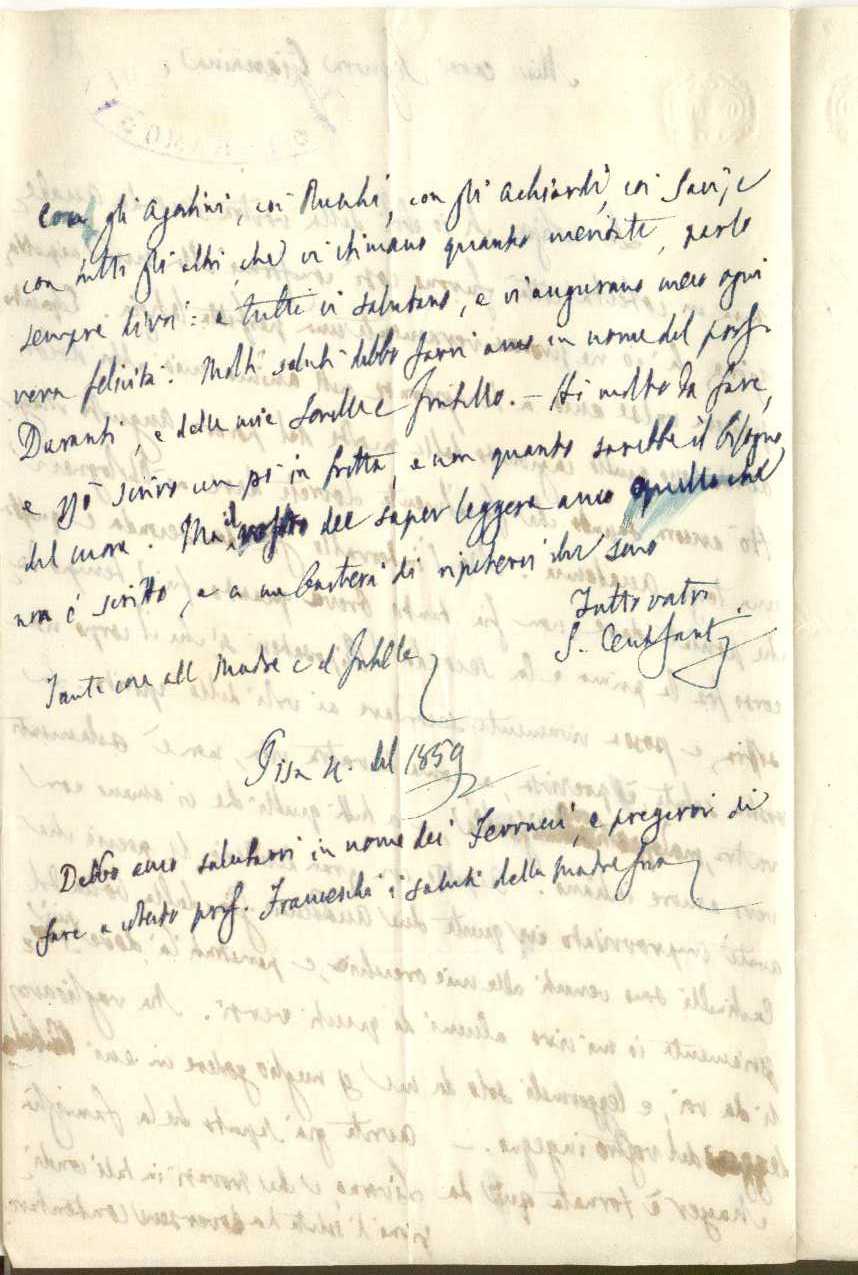 Con gli Agostini, coi Ruschi, con gli Achiardi, coi Savi, e
con tutti gli altri, che vi stimano quanto meritate, parlo
sempre di voi: e tutti vi salutano, e vi augurano meco ogni
vera felicità. Molti saluti debbo farvi anco in nome del prof.
Duranti, e delle mie Sorelle e fratello. — Ho molto da fare,
e però scrivo un po' in fretta, e non quanto sarebbe il bisogno
del cuore. Ma il vostro dee saper leggere anco quello che
non è scritto, e a me basterà di ripetervi che sono
Tutto vostro
S. Centofanti
Tante cose alla Madre e al fratello
Pisa 4. del 1859
Debbo anco salutarvi in nome dei Ferrucci, e pregarvi di
fare a cotesto prof. Franceschi i saluti della Madre sua